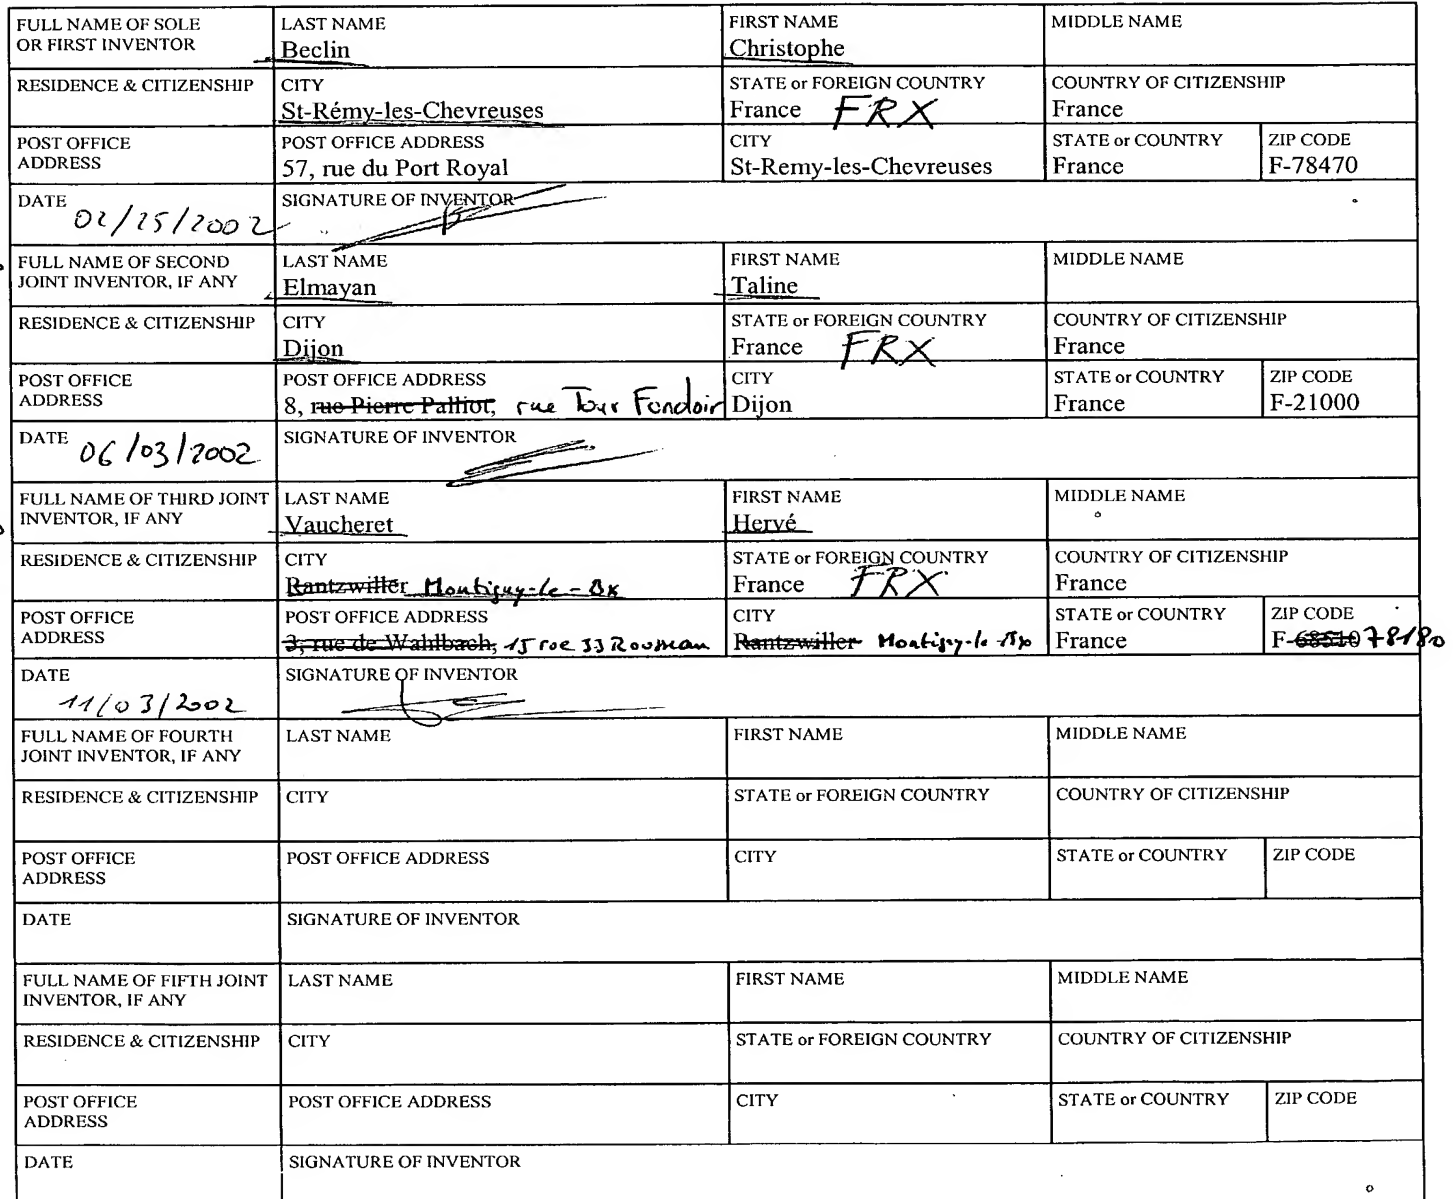 FULL NAME OF SOLE OR FIRST INVENTOR LAST NAME Beclin FIRST NAME Christophe MIDDLE NAME
RESIDENCE & CITIZENSHIP CITY St-Rémy-les-Chevreuses STATE or FOREIGN COUNTRY France FRX COUNTRY OF CITIZENSHIP France
POST OFFICE ADDRESS POST OFFICE ADDRESS 57, rue du Port Royal CITY St-Remy-les-Chevreuses STATE or COUNTRY France ZIP CODE F-78470
DATE 02/25/2002 SIGNATURE OF INVENTOR
FULL NAME OF SECOND JOINT INVENTOR, IF ANY LAST NAME Elmayan FIRST NAME Taline MIDDLE NAME
RESIDENCE & CITIZENSHIP CITY Dijon STATE or FOREIGN COUNTRY France FRX COUNTRY OF CITIZENSHIP France
POST OFFICE ADDRESS POST OFFICE ADDRESS 8, rue Pierre Palliot, rue Tour Fondoir CITY Dijon STATE or COUNTRY France ZIP CODE F-21000
DATE 06/03/2002 SIGNATURE OF INVENTOR
FULL NAME OF THIRD JOINT INVENTOR, IF ANY LAST NAME Vaucheret FIRST NAME Hervé MIDDLE NAME
RESIDENCE & CITIZENSHIP CITY Rantzwiller Montigny-le-Bx STATE or FOREIGN COUNTRY France FRX COUNTRY OF CITIZENSHIP France
POST OFFICE ADDRESS POST OFFICE ADDRESS 3, rue de Wahlbach, 15 rue JJ Rousseau CITY Rantzwiller Montigny-le-Bx STATE or COUNTRY France ZIP CODE F-68510 78180
DATE 11/03/2002 SIGNATURE OF INVENTOR
FULL NAME OF FOURTH JOINT INVENTOR, IF ANY LAST NAME FIRST NAME MIDDLE NAME
RESIDENCE & CITIZENSHIP CITY STATE or FOREIGN COUNTRY COUNTRY OF CITIZENSHIP
POST OFFICE ADDRESS POST OFFICE ADDRESS CITY STATE or COUNTRY ZIP CODE
DATE SIGNATURE OF INVENTOR
FULL NAME OF FIFTH JOINT INVENTOR, IF ANY LAST NAME FIRST NAME MIDDLE NAME
RESIDENCE & CITIZENSHIP CITY STATE or FOREIGN COUNTRY COUNTRY OF CITIZENSHIP
POST OFFICE ADDRESS POST OFFICE ADDRESS CITY STATE or COUNTRY ZIP CODE
DATE SIGNATURE OF INVENTOR